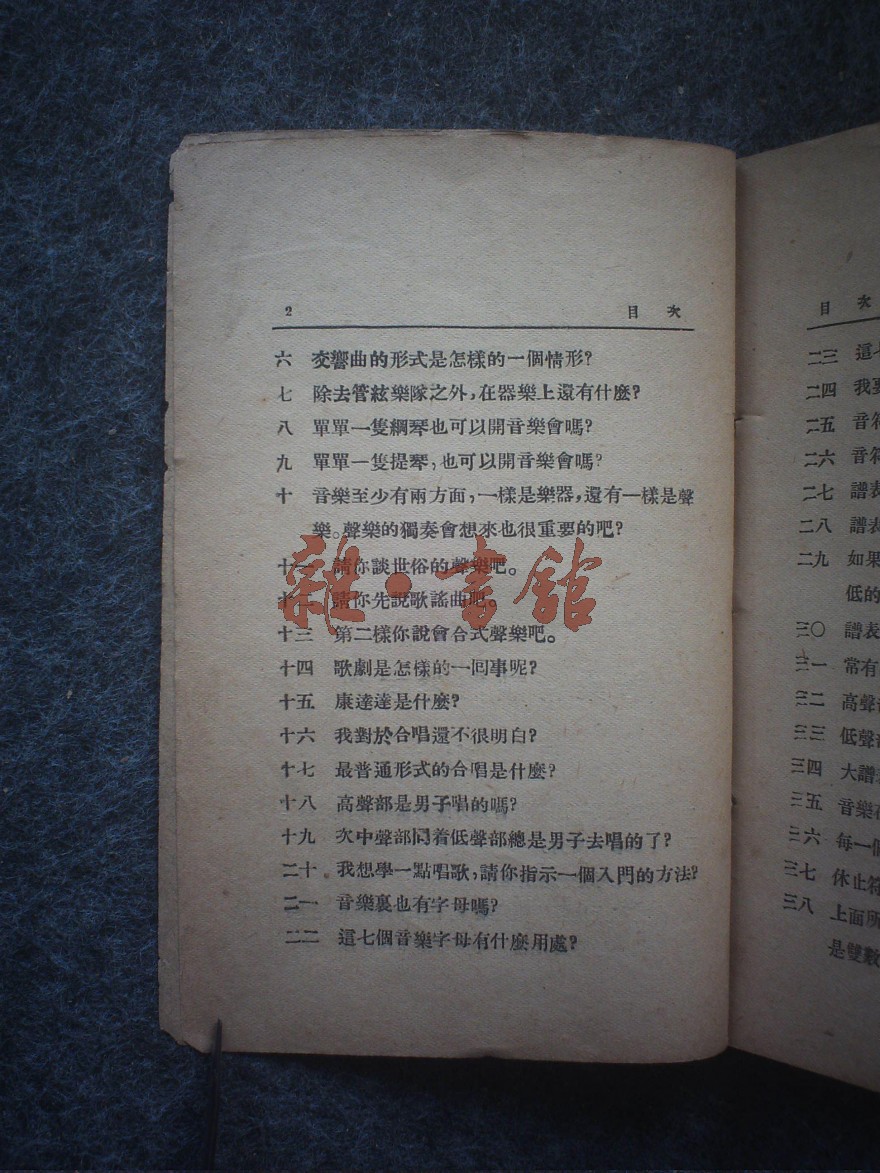 2 目次
六 交響曲的形式是怎樣的一個情形?
七 除去管絃樂隊之外,在器樂上還有什麼?
八 單單一隻鋼琴也可以開音樂會嗎?
九 單單一隻提琴,也可以開音樂會嗎?
十 音樂至少有兩方面,一樣是樂器,還有一樣是聲
樂。聲樂的獨奏會想來也很重要的吧?
十一 請你談世俗的聲樂吧。
十二 請你先說歌謠曲吧。
十三 第二樣你說會合式聲樂吧。
十四 歌劇是怎樣的一回事呢?
十五 康達達是什麼?
十六 我對於合唱還不很明白?
十七 最普通形式的合唱是什麼?
十八 高聲部是男子唱的嗎?
十九 次中聲部同着低聲部總是男子去唱的了?
二十 我想學一點唱歌,請你指示一個入門的方法?
二一 音樂裏也有字母嗎?
二二 這七個音樂字母有什麼用處?
雜·書館
目次
二三 這七
二四 我要
二五 音符
二六 音符
二七 譜表
二八 譜表
二九 如果
低的
三〇 譜表
三一 常有
三二 高聲部
三三 低聲部
三四 大譜表
三五 音樂在
三六 每一個
三七 休止符
三八 上面所
是雙數